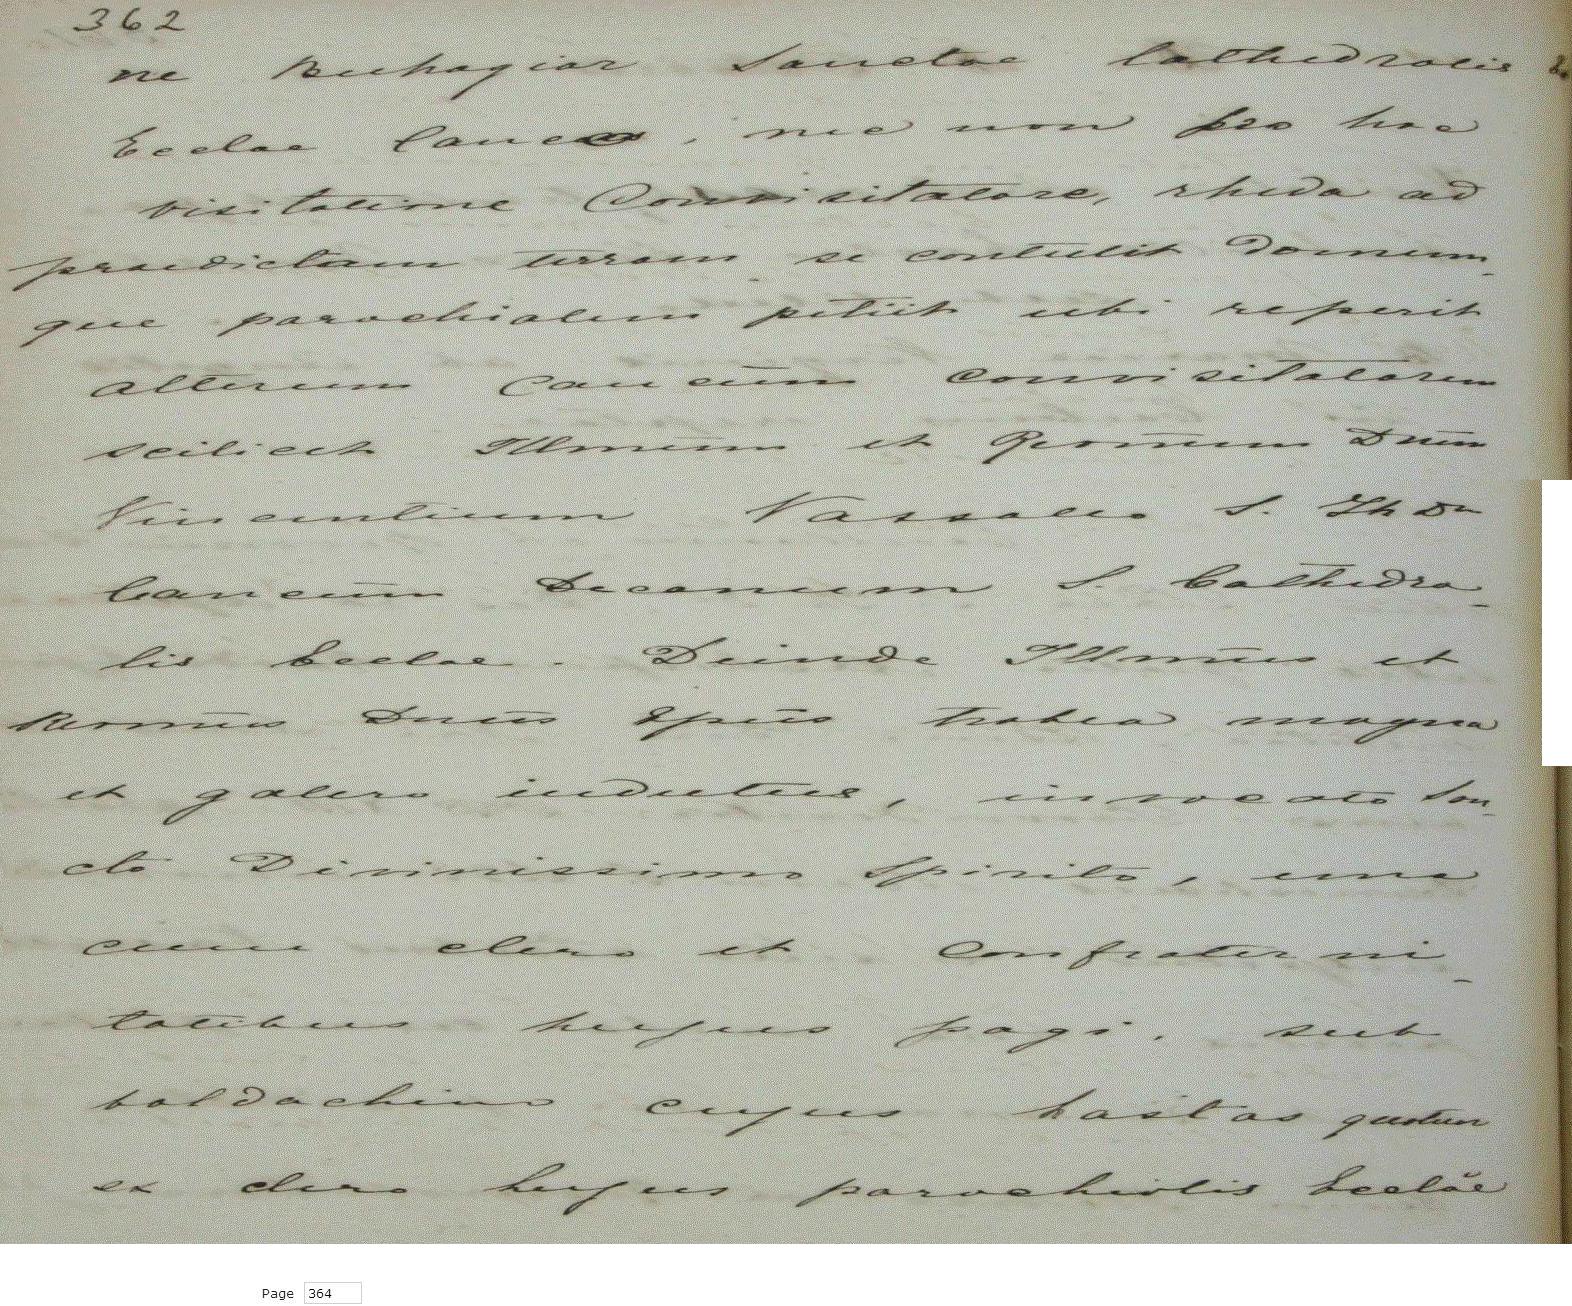 362
ne Buhagiar Sanctae Cathedralis
Ecclae Canco, nec non pro hac
visitatione Convisitatore, rheda ad
praedictam terram se contulit domum-
que parochialem petiit ubi reperit
alterum Canēum convisitatorem
scilicet Illmum et Rmūm Dnūm
Vincentium Vassallo S. Th Dr
Canēum Decanum S. Cathedra-
lis Ecclae. Deinde Illmūs et
Rmūs Dnūs Epūs trabea magna
et galero indutus, invocato San-
cto Divinissimo Spirito, una
cum clero et Confraterni-
tatibus hujus pagi, sub
baldachino cujus hastas
ex clero hujus parochialis Ecclae
Page 364